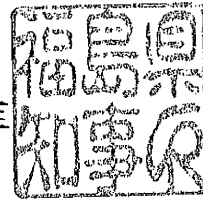 福島県
知事印